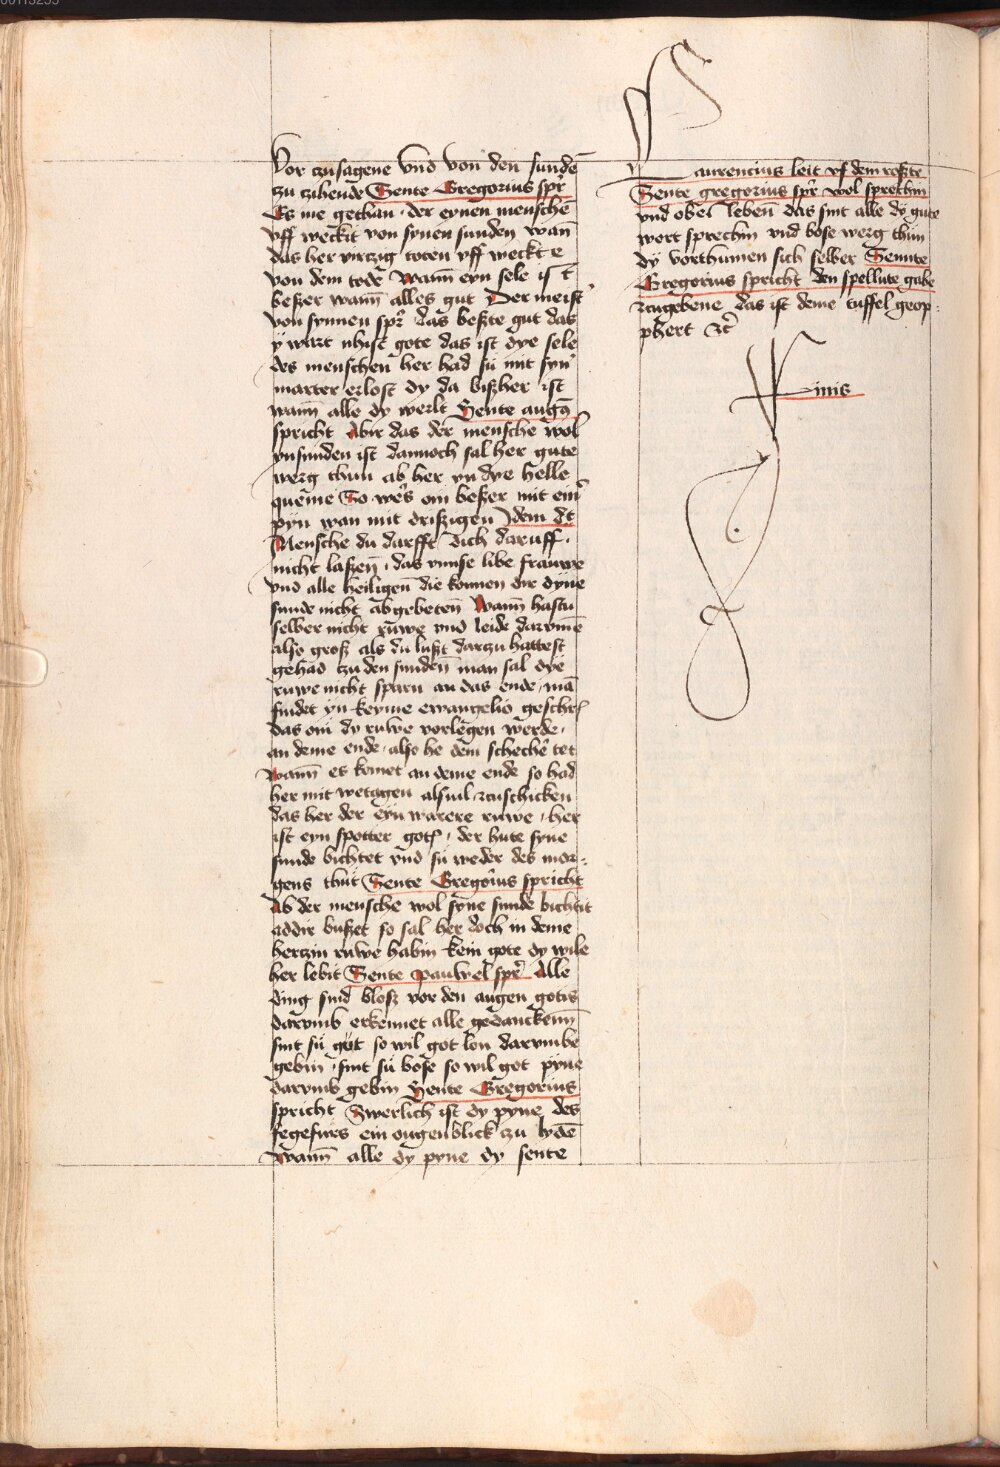 Vor czusagene vnd von den sundē
zu zihende Sente Gregorius spr
Es me gethan · der eynen menschē
vff weckit von synen sunden wan
das her virczig toten vff weckt e
von dem tode Wann̄ eyn sele ist
beßer wann̄ alles gut Der meist
von synnen spr̄ das beßte gut das
y wart nhist gote das ist dye sele
des menschen her had sü mit syn̄
marter erlost dy da bißher ist
wann̄ alle dy werlt Sente augꝰ
spricht Abir das der mensche wol
ynsunden ist dannoch sal her gute
werg thun ab her yn dye helle
queme So wer's om beßer mit ein̄
pyn wan mit drißigen Idem d̄t
Mensche du darfft dich daruff ·
nicht laßen̄ · das vnnse libe frauwe
vnd alle heiligen̄ die konnen dir dyne
sunde nicht abgebeten̄ Wann̄ hastu
selber nicht ruwe vnd leide darvmē
also groß als du lußt darzu hattest
gehad czu den sunden̄ man sal dye
ruwe nicht sparn an das ende · mā
findet yn keyme ewangelio geschrē
das om dy ruwe vorlegen werde ·
an deme ende · also he dem schechē tet
Wann̄ es komet an deme ende so had
her mit wetagen alsuil zcuschicken
das her der eyn warere ruwe · her
ist eyn spotter gotꝭ · der hute syne
sunde bichtet vnd sü weder des mor-
gens thut Sente Gregorius spricht
Ab der mensche wol syne sunde bichtit
addir bußet so sal her doch in deme
herczin ruwe habin kein gote dy wile
her lebit Sente pauwel spr̄ Alle
ding sind bloß vor den augen gotis
darvmb erkennet alle gedancken̄
sint sü gut so wil got lon darvmbe
gebin · sint sü bose so wil got pyne
darvmb gebin Sente Gregorius
spricht Swerlich ist dy pyne des
fegefurs ein ougenblick zu lydē
Wann̄ alle dy pyne dy sente
Laurencius leit vf dem roßte
Sente gregorius spr̄ wol sprechin
vnd obel leben̄ das sint alle dy gute
wort sprechin vnd bose werg thun
dy vorthumen sich selber Sennte
Gregorius spricht den spellute gabe
zcugebene das ist deme tuffel geop-
phert zc̄
Finis